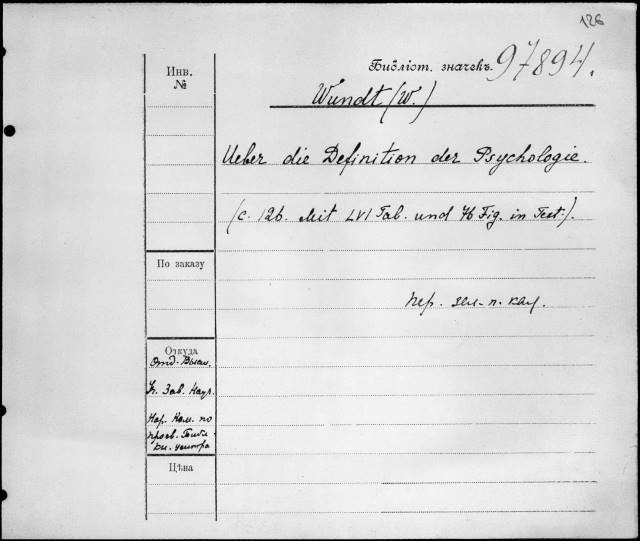 126
Инв.
№
Библіот. значекъ 97894.
Wundt (W.)
Ueber die Definition der Psychologie.
(c. 12b. Mit LVI Tab. und 76 Fig. in Text.).
По заказу
пер. зел. п. кал.
Откуда
Отд. Высш.
Уч. Зав. Нар.
Нар. Ком. по
просв. Библ.
Цѣна